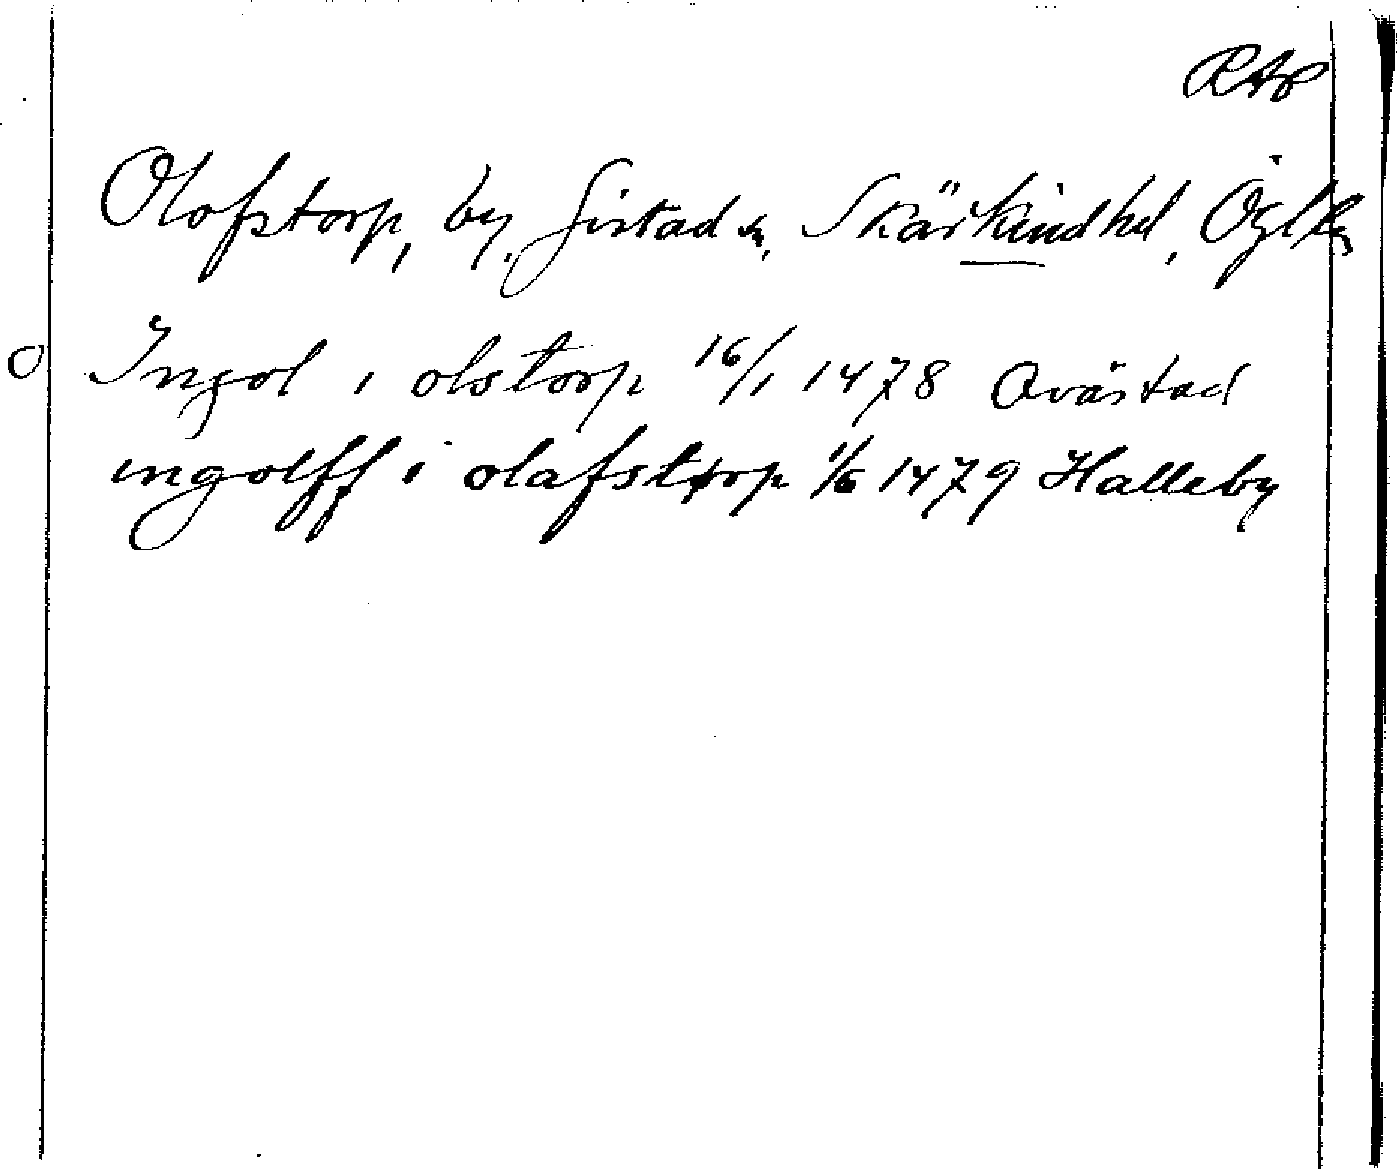 RAP
Olofstorp, by, Gistad sn, Skärkind hd, Ögl
O Ingol i olstorp 16/1 1478 Ovästad
ingolff i olafstorp 1/6 1479 Halleby